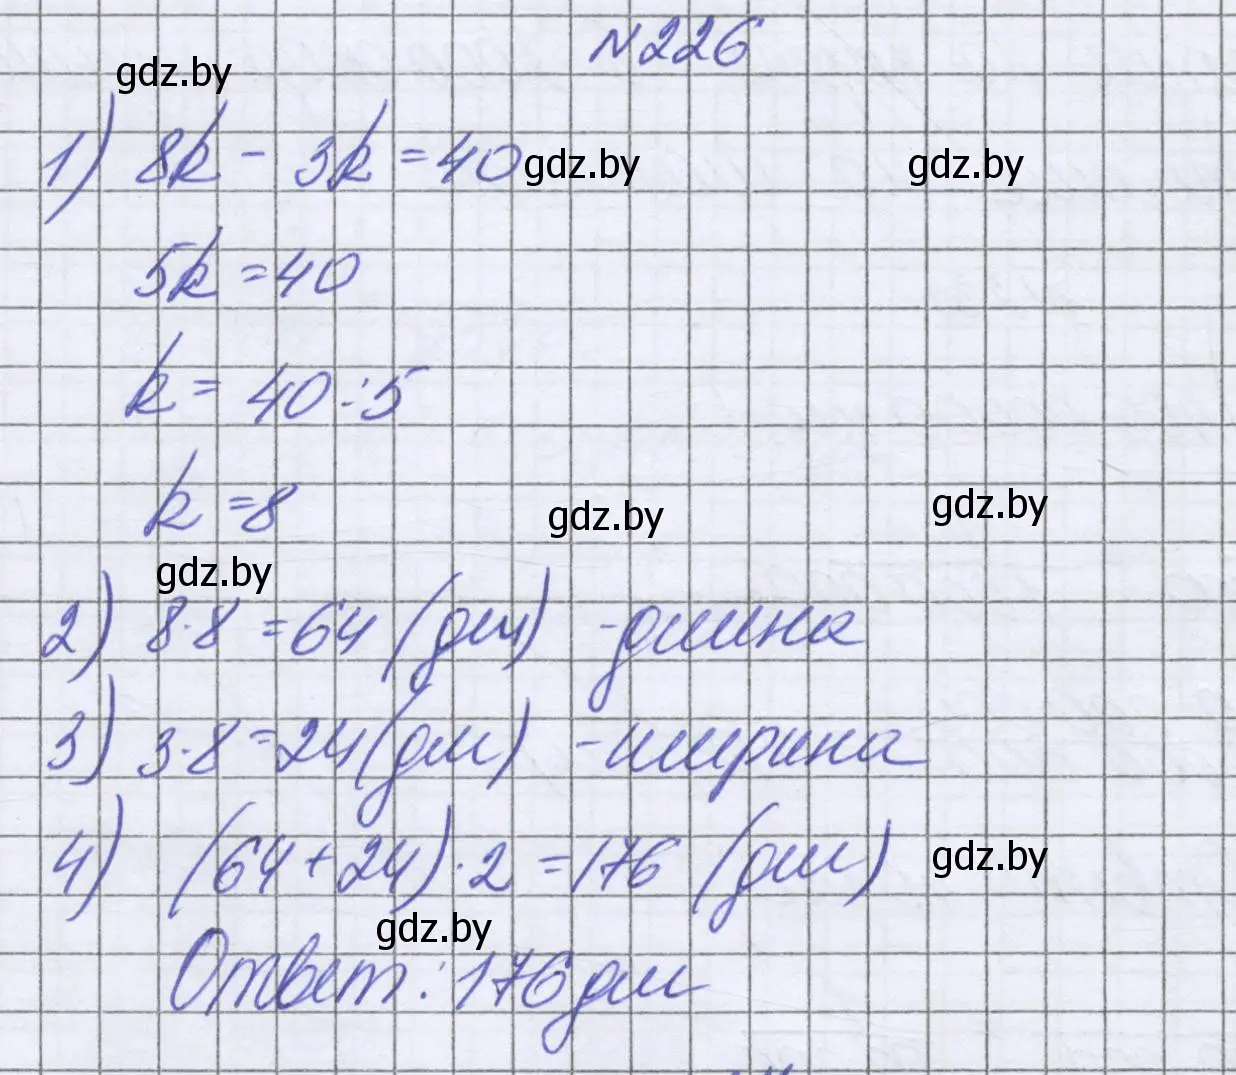 №226
gdz.by
1) 8k - 3k = 40
gdz.by
gdz.by
5k = 40
k = 40 : 5
k = 8
gdz.by
gdz.by
gdz.by
2) 8·8 = 64 (дм) - длина
3) 3·8 = 24 (дм) - ширина
4) (64 + 24)·2 = 176 (дм)
gdz.by
gdz.by
Ответ: 176 дм